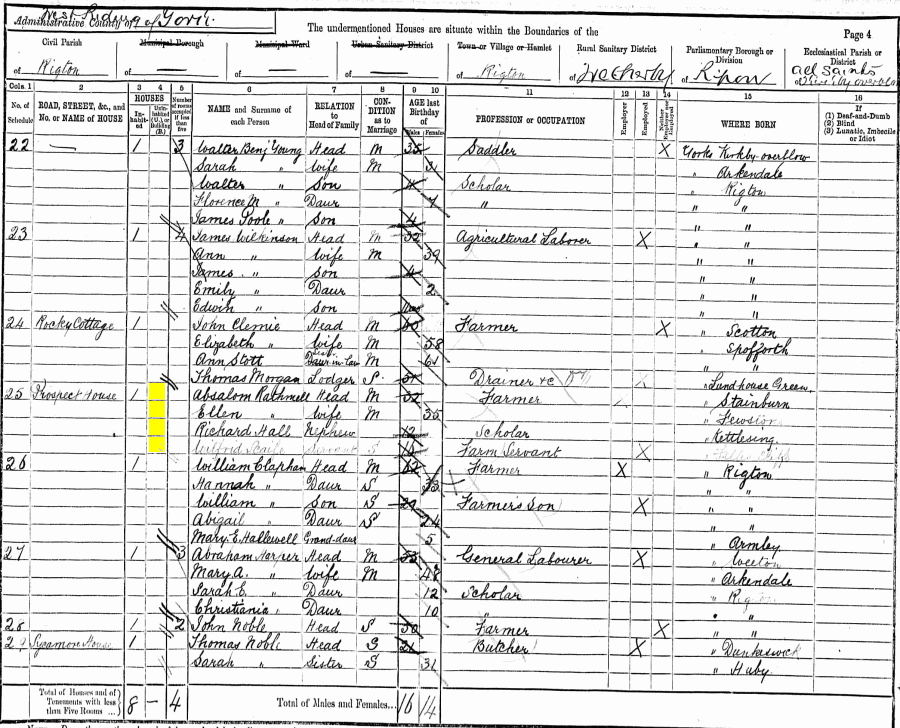 West Riding of York
Administrative County of
The undermentioned Houses are situate within the Boundaries of the
Page 4
Civil Parish
Municipal Borough
Municipal Ward
Urban Sanitary District
Town or Village or Hamlet
Rural Sanitary District
Parliamentary Borough or Division
Ecclesiastical Parish or District
of Rigton
of —
of —
of —
of Rigton
of Wetherby
of Ripon
All Saints
of
Cols. 1 2 3 4 5 6 7 8 9 10 11 12 13 14 15 16
No. of Schedule
ROAD, STREET, &c., and No. or NAME of HOUSE
HOUSES
Inhabited
Uninhabited (U.), or Building (B.)
Number of rooms occupied if less than five
NAME and Surname of each Person
RELATION to Head of Family
CONDITION as to Marriage
AGE last Birthday of
Males Females
PROFESSION or OCCUPATION
Employer
Employed
Neither Employer nor Employed
WHERE BORN
If
(1) Deaf-and-Dumb
(2) Blind
(3) Lunatic, Imbecile or Idiot
22 — 1 3 Walter Benj Young Head M 35 Saddler X Yorks Kirkby overblow
Sarah " Wife M " Arkendale
Walter " Son Scholar " Rigton
Florence M " Daur 7 " " "
James Poole " Son 4 " "
23 1 4 James Wilkinson Head M 32 Agricultural Laborer X " "
Ann " Wife M 39 " "
James " Son " "
Emily " Daur 2 " "
Edwin " Son " "
24 Rocky Cottage 1 John Clemie Head M 60 Farmer X " Scotton
Elizabeth " Wife M 58 " Spofforth
Ann Stott Daur-in-law M 61 " "
Thomas Morgan Lodger S Drainer &c X " Lundhouse Green
25 Prospect House 1 Absalom Rathmell Head M 32 Farmer " Stainburn
Ellen " Wife M 35 " Fewston
Richard Hall Nephew 12 Scholar " Kettlesing
Wilfrid Servant S Farm Servant X
26 1 William Clapham Head M 62 Farmer X " Rigton
Hannah " Daur S 33 " "
William " Son S 29 Farmers Son X " "
Abigail " Daur S 24 " "
Mary E Hallewell Grand-daur 5 " Armley
27 1 3 Abraham Harper Head M 53 General Labourer X " Weeton
Mary A. " Wife M 48 " Arkendale
Sarah E. " Daur 12 Scholar " Rigton
Christiania " Daur 10 " " "
28 1 2 John Noble Head S 30 Farmer X " "
29 Sycamore House 1 Thomas Noble Head S 21 Butcher X " Dunkeswick
Sarah " Sister S 31 " Huby
Total of Houses and of Tenements with less than Five Rooms ... 8 — 4
Total of Males and Females... 16 14